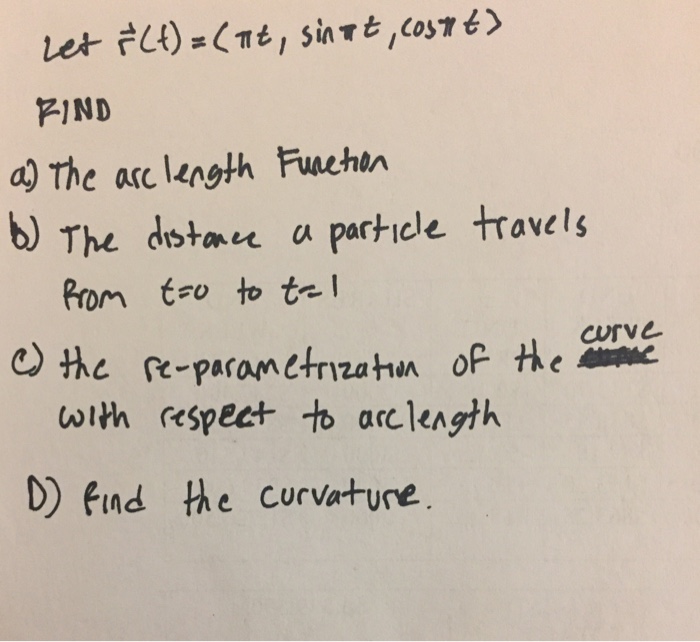 Let r⃗(t) = ⟨πt, sin πt, cos π t⟩
FIND
a) The arc length Function
b) The distance a particle travels
from t=0 to t=1
c) the re-parametrization of the curve
with respect to arc length
D) find the curvature.